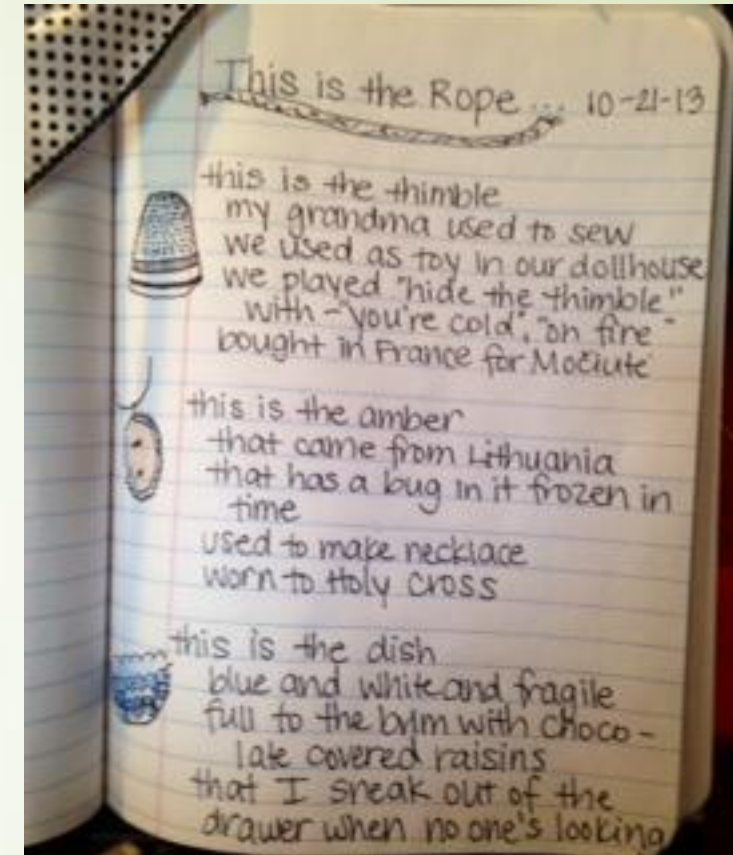 This is the Rope... 10-21-13
this is the thimble
my grandma used to sew
we used as toy in our dollhouse
we played "hide the thimble"
with - "you're cold", "on fire"
bought in France for Močiute
this is the amber
that came from Lithuania
that has a bug in it frozen in
time
used to make necklace
worn to Holy Cross
this is the dish
blue and white and fragile
full to the brim with choco-
late covered raisins
that I sneak out of the
drawer when no one's looking